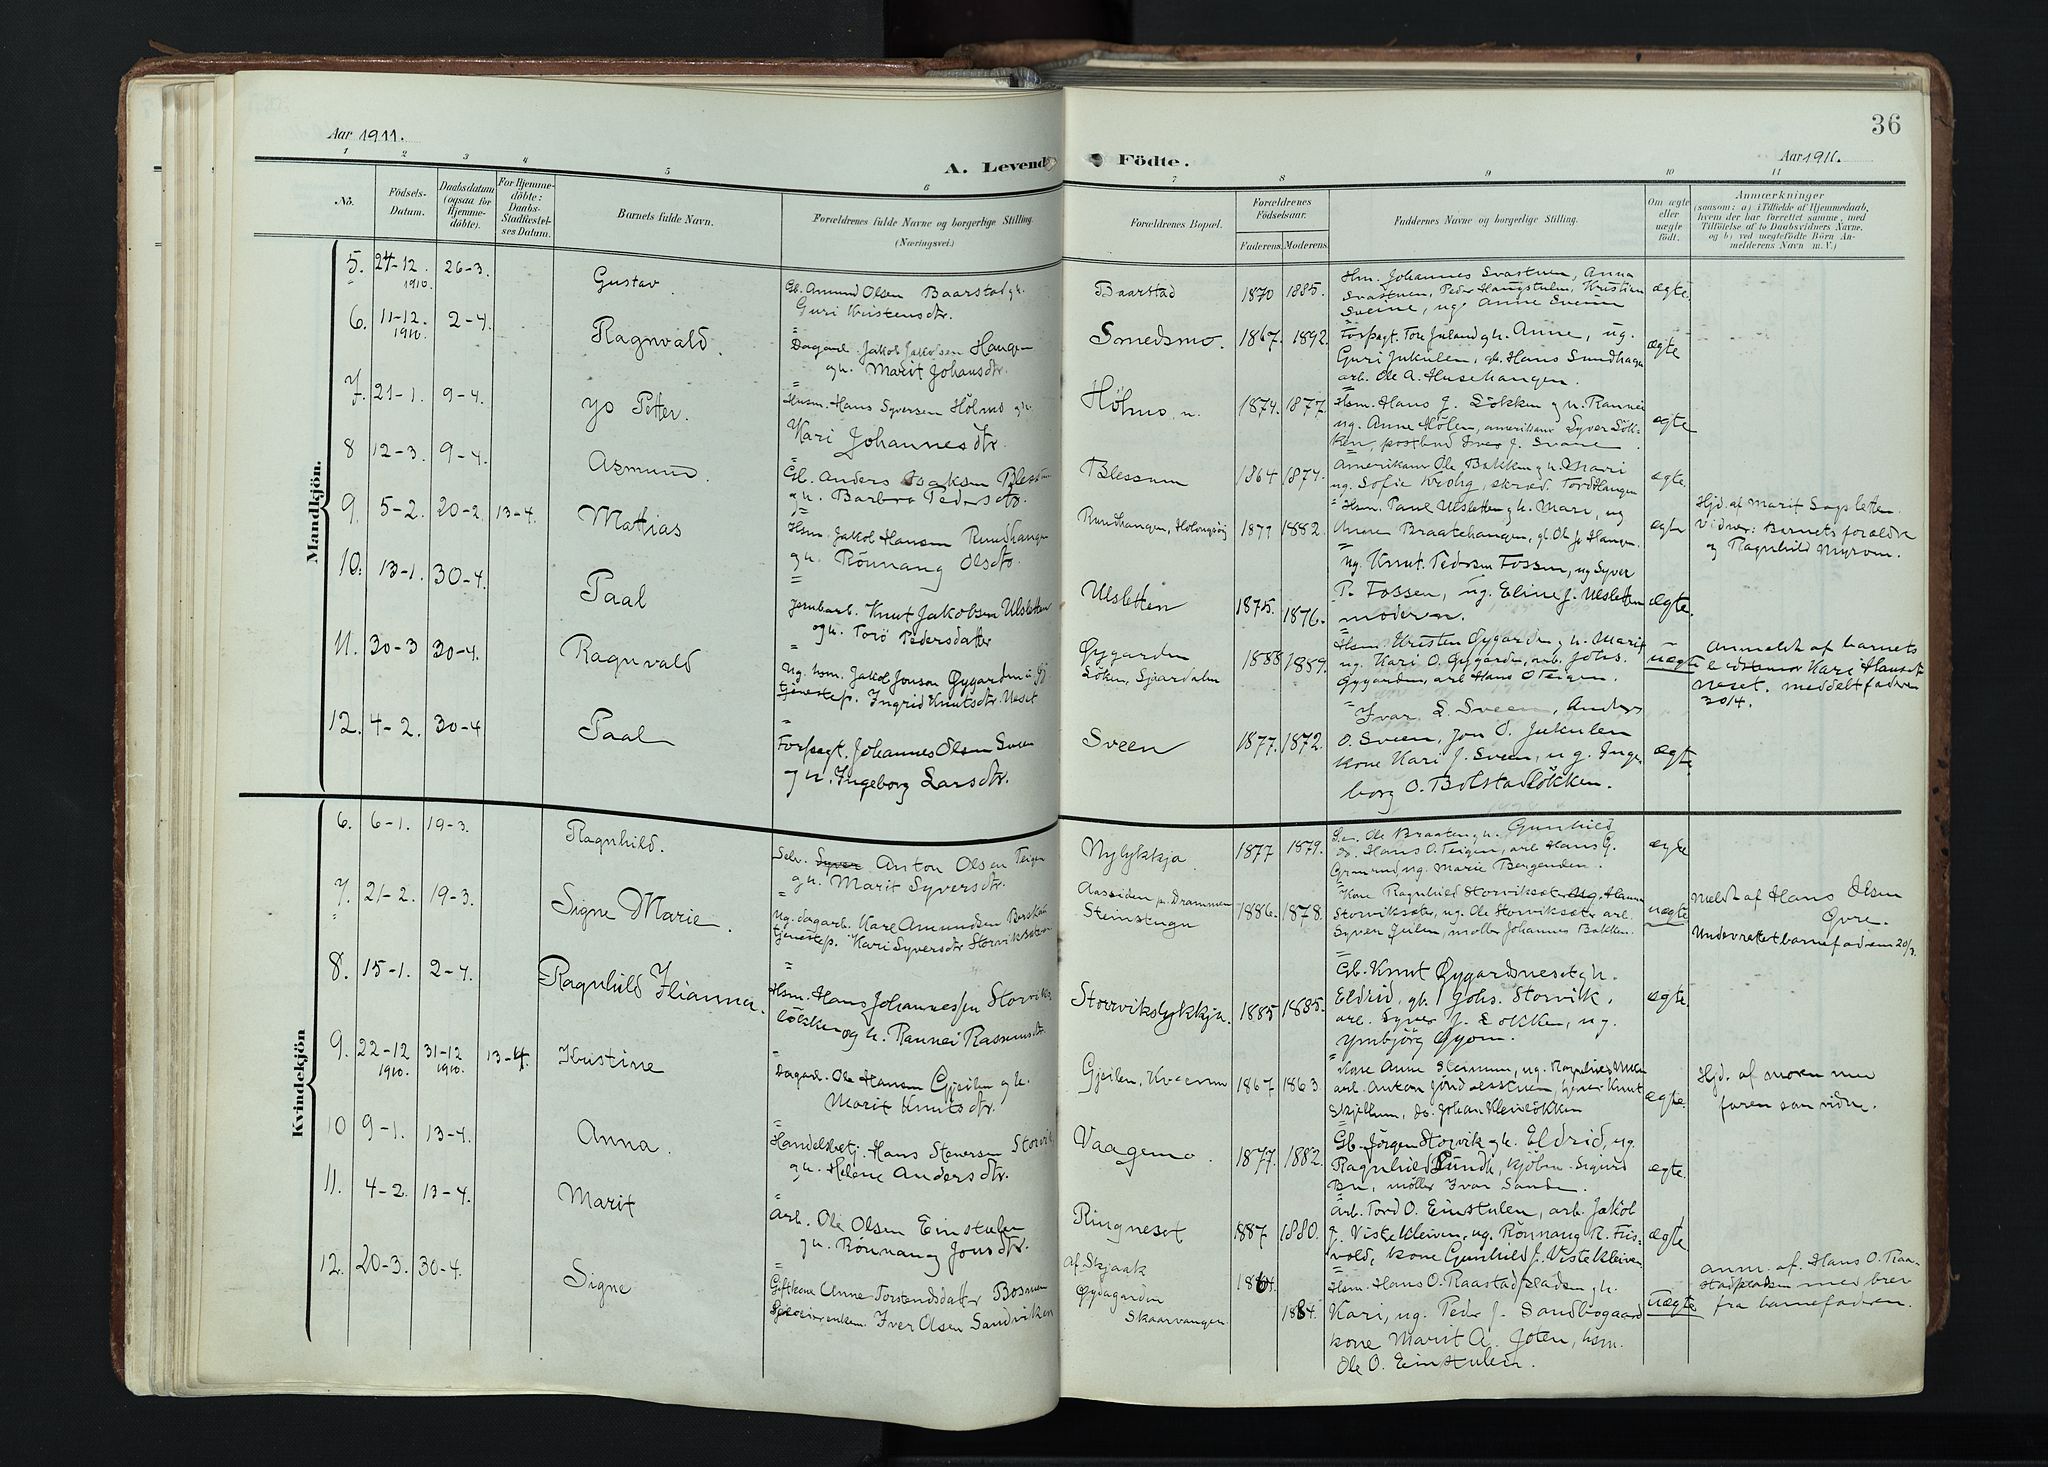 36
Aar 1911.
Aar 1911.
A. Levende Födte.
1 2 3 4 5 6 7 8 9 10 11
No.
Födsels-
Datum.
Daabsdatum
(ogsaa for
Hjemme-
döbte).
For Hjemme-
döbte:
Daabs-
Stadfæstel-
ses Datum.
Barnets fulde Navn.
Forældrenes fulde Navne og borgerlige Stilling.
(Næringsvei.)
Forældrenes Bopæl.
Forældrenes
Födselsaar.
Faderens. Moderens.
Faddernes Navne og borgerlige Stilling.
Om ægte
eller
uægte
födt.
Anmærkninger
(saasom: a) i Tilfælde af Hjemmedaab,
hvem der har forrettet samme, med
Tilföielse af to Daabsvidners Navne.
og b) ved uægtefödte Börn An-
melderens Navn m. V.)
Mandkjön.
5. 27-12. 1910 26-3. Gustav.
Gb. Amund Olsen Baarstad og h.
Guri Kristensdtr.
Baarstad 1870 1885.
Hm. Johannes Svastuen, Anna
Svastuen, Peder Haugstulen, Kristian
Sveine, ug. Anne Sveine
ægte.
6. 11-12. 1910. 2-4. Ragnvald.
Dagarb. Jakob Jakobsen Haugen
og h. Marit Johansdtr.
Smedsmo. 1867. 1892.
Forpagt. Tore Juland g h. Anne, ug.
Guri Jukulen, gb. Hans Sundhagen
arb. Ole A. Husehaugen.
ægte
7. 21-1. 9-4. Jo Petter.
Husm. Hans Syversen Hölmo g h.
Kari Johannesdtr.
Hölmo n. 1874. 1877.
Hsm. Hans J. Lökken g h. Rannei
ug. Anne Hölen, amerikaner Syver Lök-
ken, postbud Iver J. Svare
ægte
8 12-3. 9-4. Asmund.
Gb. Anders Isaksen Blessum
og h. Barbro Pedersdtr.
Blessum 1864 1874.
Amerikaner Ole Bakken g h. Mari
ug. Sofie Krohg, skræd. Tord Haugen
ægte.
9. 5-2. 20-2. 13-4. Mattias
Hsm. Jakob Hansen Rundhaugen
og h. Rönnaug Olsdtr.
1879 1882.
Hsm. Paul Ulsletten g h. Mari, ug
Braatehaugen, gb. Ole Jo Haugen.
ægte
Hjd. af Marit Sagsletten.
Vidner: Barnets forældre
og Ragnhild Myrom.
10. 13-1. 30-4. Paal
Jernbarb. Knut Jakobsen Ulsletten
og h. Torö Pedersdatter
Ulsletten 1875. 1876.
Ug. Knut Pedersen Fossen, ug Syver
P. Fossen, ug. Eline J. Ulsletten
moderen.
ægte.
11. 30-3 30-4. Ragnvald
Ug. hsm. Jakob Jonson Öygarden
tjenestep. Ingrid Knutsdtr. Neset
Öygarden
Löken, Sjaardalen
1888 1889.
Hsm. Kristen Öygarden g h. Marit
ug. Kari O. Öygarden, arb. Johs.
Öygarden, arb Hans O Teigen.
uægte
Anmeldt af barnets
Kari Hansdtr
Neset. meddelt faderen
30/4.
12. 4-2. 30-4 Paal
Forpagt. Johannes Olsen Sveen
og h. Ingeborg Larsdtr.
Sveen 1877. 1872.
Ivar L. Sveen, Anders
O. Sveen, Jon O. Jukulen
kone Kari J. Sveen, ug. Inge-
borg O. Bolstadlökken.
ægte.
Kvindekjön
6. 6-1. 19-3. Ragnhild.
Selv. Syver Anton Olsen Teigen
og h. Marit Syversdtr.
Nylykkja 1877 1879.
Ole Braaten g h. Gunhild
do. Hans O. Teigen, arb Hans G.
Ormrud ug. Marie Bergenden.
ægte
7. 21-2. 19-3. Signe Marie.
Ug. dagarb. Karl Amundsen
tjenestep. Kari Syversdtr Storviksæter
Aassiden pr. Drammen
Steinstugu
1886. 1878.
Kone Ragnhild Storviksæter
Storviksæter, ug. Ole Storviksæter arb.
Syver Jeilen, møller Johannes Bakken.
uægte
Meldt af Hans Olsen
Övre.
Underrettet barnefaderen 20/3.
8. 15-1. 2-4. Ragnhild Hianna.
Hsm. Hans Johannessen Storviks-
lökken og h. Rannei Rasmusdtr.
Storvikslykkja. 1885 1885.
Gb. Knut Öygardsneset g h.
Eldrid, gb. Johs. Storvik,
arb. Syver J. Lökken, ug.
Ymbjörg Öyom.
ægte.
9. 22-12 1910. 31-12 1910. 13-4. Kristine
Dagarb. Ole Hansen Gjeilen g h.
Marit Knutsdtr.
Gjeilen, Kværnn 1867 1863.
Kone Anne Steinum, ug. Ragnhild
arb. Anton Jöndalsstuen, Knut
Skjellum, do. Johan Kleivlökken
ægte.
Hjd. af moren med
faren som vidne.
10 9-1. 13-4. Anna.
Handelsbetj. Hans Stenersen Storvik
og h. Helene Andersdtr.
Vaagemo. 1877. 1882.
Gb. Jörgen Storvik g h. Eldrid, ug.
Ragnhild Lunde, kjöbm. Sigurd
Bu, möller Ivar Sande.
ægte.
11. 4-2. 13-4. Marit
Arb. Ole Olsen Einstulen
og h. Rönnaug Jonsdtr.
Ringneset 1887 1880.
Arb. Tord O. Einstulen, arb. Jakob
J. Vistekleiven, ug. Rönnaug R. Fris-
vold, kone Gunhild J. Vistekleiven
ægte
12. 20-3. 30-4. Signe
Giftkone Anne Torstensdatter Bosmoen
Iver Olsen Sandviken
Af. Skjaak
Öydegarden
Skaarvangen.
1884.
Hsm. Hans O. Raastadpladsen g h.
Kari, ug. Peder J. Sandbogaard
kone Marit A. Joten, hsm.
Ole O. Einstulen.
uægte
Anm. af. Hans O. Raa-
stadpladsen med brev
fra barnefaderen.